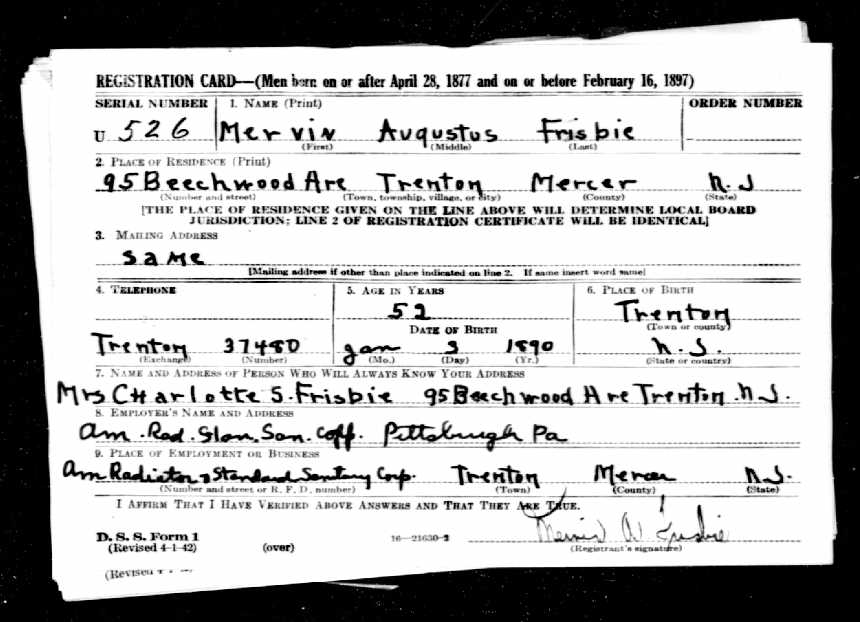 REGISTRATION CARD—(Men born on or after April 28, 1877 and on or before February 16, 1897)
SERIAL NUMBER 1. NAME (Print) ORDER NUMBER
U 526 Mervin Augustus Frisbie
(First) (Middle) (Last)
2. PLACE OF RESIDENCE (Print)
95 Beechwood Ave Trenton Mercer N.J
(Number and street) (Town, township, village, or city) (County) (State)
[THE PLACE OF RESIDENCE GIVEN ON THE LINE ABOVE WILL DETERMINE LOCAL BOARD
JURISDICTION; LINE 2 OF REGISTRATION CERTIFICATE WILL BE IDENTICAL]
3. MAILING ADDRESS
Same
[Mailing address if other than place indicated on line 2. If same insert word same]
4. TELEPHONE 5. AGE IN YEARS 6. PLACE OF BIRTH
52 Trenton
DATE OF BIRTH (Town or county)
Trenton 37480 Jan 3 1890 N.J.
(Exchange) (Number) (Mo.) (Day) (Yr.) (State or country)
7. NAME AND ADDRESS OF PERSON WHO WILL ALWAYS KNOW YOUR ADDRESS
Mrs Charlotte S. Frisbie 95 Beechwood Ave Trenton N.J.
8. EMPLOYER'S NAME AND ADDRESS
Am. Rad. Stan. San. Pittsburgh Pa
9. PLACE OF EMPLOYMENT OR BUSINESS
Am Radiator & Standard Sanitary Corp. Trenton Mercer N.J.
(Number and street or R. F. D. number) (Town) (County) (State)
I AFFIRM THAT I HAVE VERIFIED ABOVE ANSWERS AND THAT THEY ARE TRUE.
Mervin A Frisbie
D. S. S. Form 1 16—21630-2
(Revised 4-1-42) (over) (Registrant's signature)
(Revised